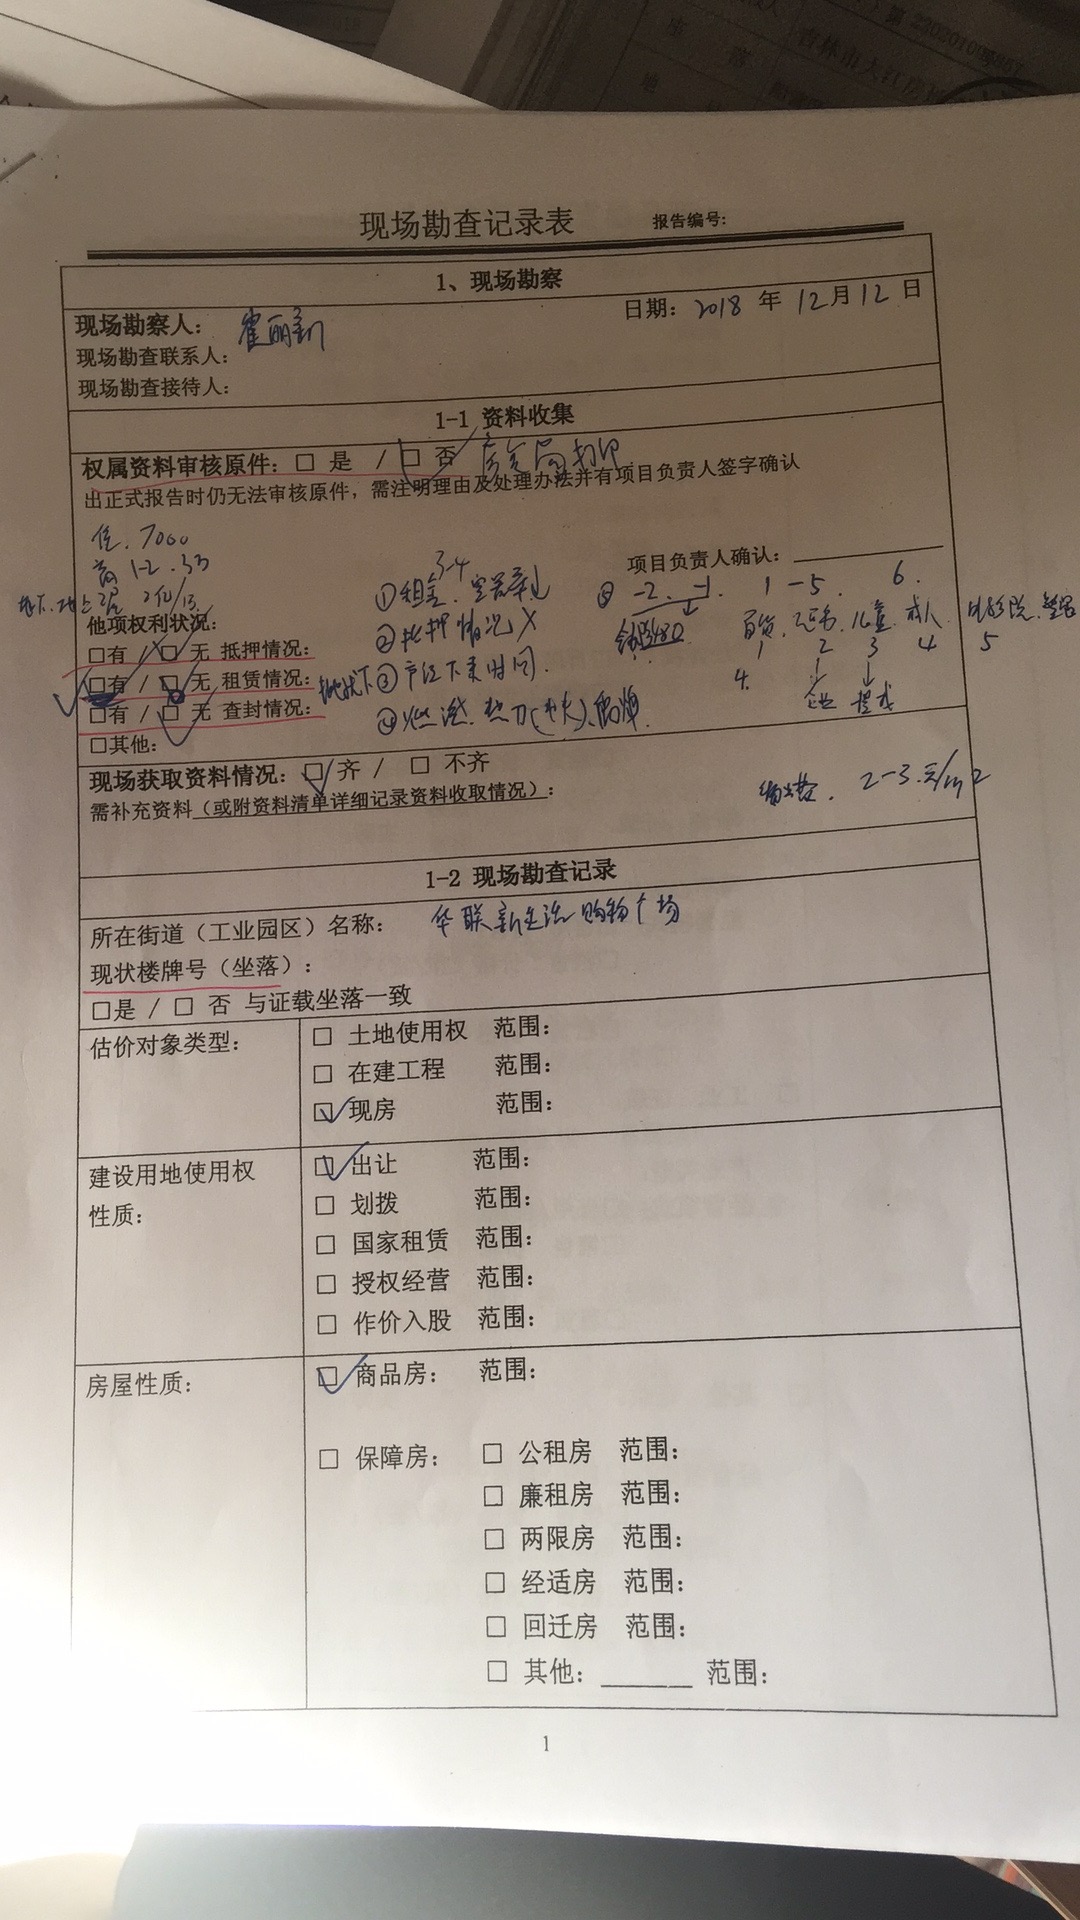 现场勘查记录表 报告编号:
1、现场勘察
现场勘察人: 日期: 2018 年 12月12 日
现场勘查联系人:
现场勘查接待人:
1-1 资料收集
权属资料审核原件: □ 是 / □ 否
出正式报告时仍无法审核原件，需注明理由及处理办法并有项目负责人签字确认
住.7000
商 1-2.3万
项目负责人确认:
3-4
①租金.
-2. -1. 1-5. 6.
他项权利状况:
②抵押情况 X
百货. 儿童. 成人
1 2 3 4 5
□有 / □ 无 抵押情况:
□有 / □ 无 租赁情况:
③
4.
□有 / □ 无 查封情况:
④
□其他:
现场获取资料情况: □ 齐 / □ 不齐
2-3.元/m2
需补充资料（或附资料清单详细记录资料收取情况）:
1-2 现场勘查记录
所在街道（工业园区）名称: 华联新生活购物广场
现状楼牌号（坐落）:
□是 / □ 否 与证载坐落一致
估价对象类型: □ 土地使用权 范围:
□ 在建工程 范围:
□ 现房 范围:
建设用地使用权 □ 出让 范围:
性质: □ 划拨 范围:
□ 国家租赁 范围:
□ 授权经营 范围:
□ 作价入股 范围:
房屋性质: □ 商品房: 范围:
□ 保障房: □ 公租房 范围:
□ 廉租房 范围:
□ 两限房 范围:
□ 经适房 范围:
□ 回迁房 范围:
□ 其他: 范围:
1